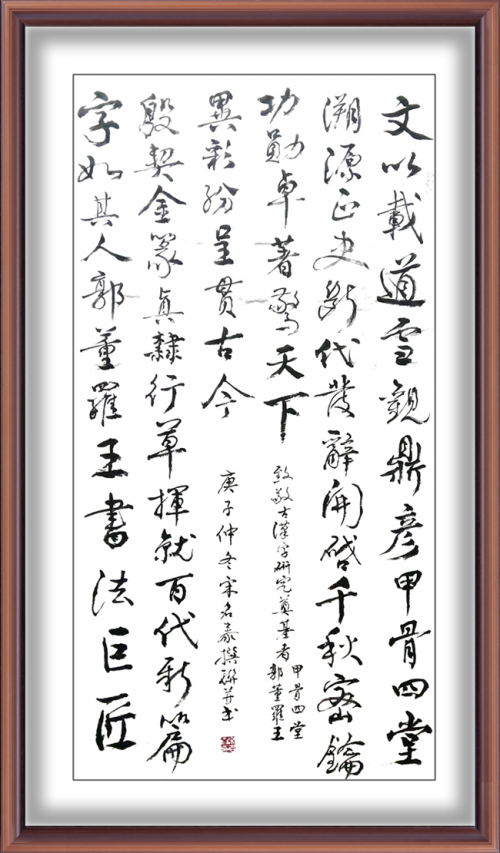 文以載道雪觀鼎彥甲骨四堂
溯源正史斷代發辭開啓千秋密鑰
功勛卓著驚天下
致敬古漢字研究奠基者
甲骨四堂
郭董羅王
字如其人郭董羅王書法巨匠
殷契金篆真隸行草揮就百代新篇
異彩紛呈貫古今
庚子仲冬宋名豪撰聯并书